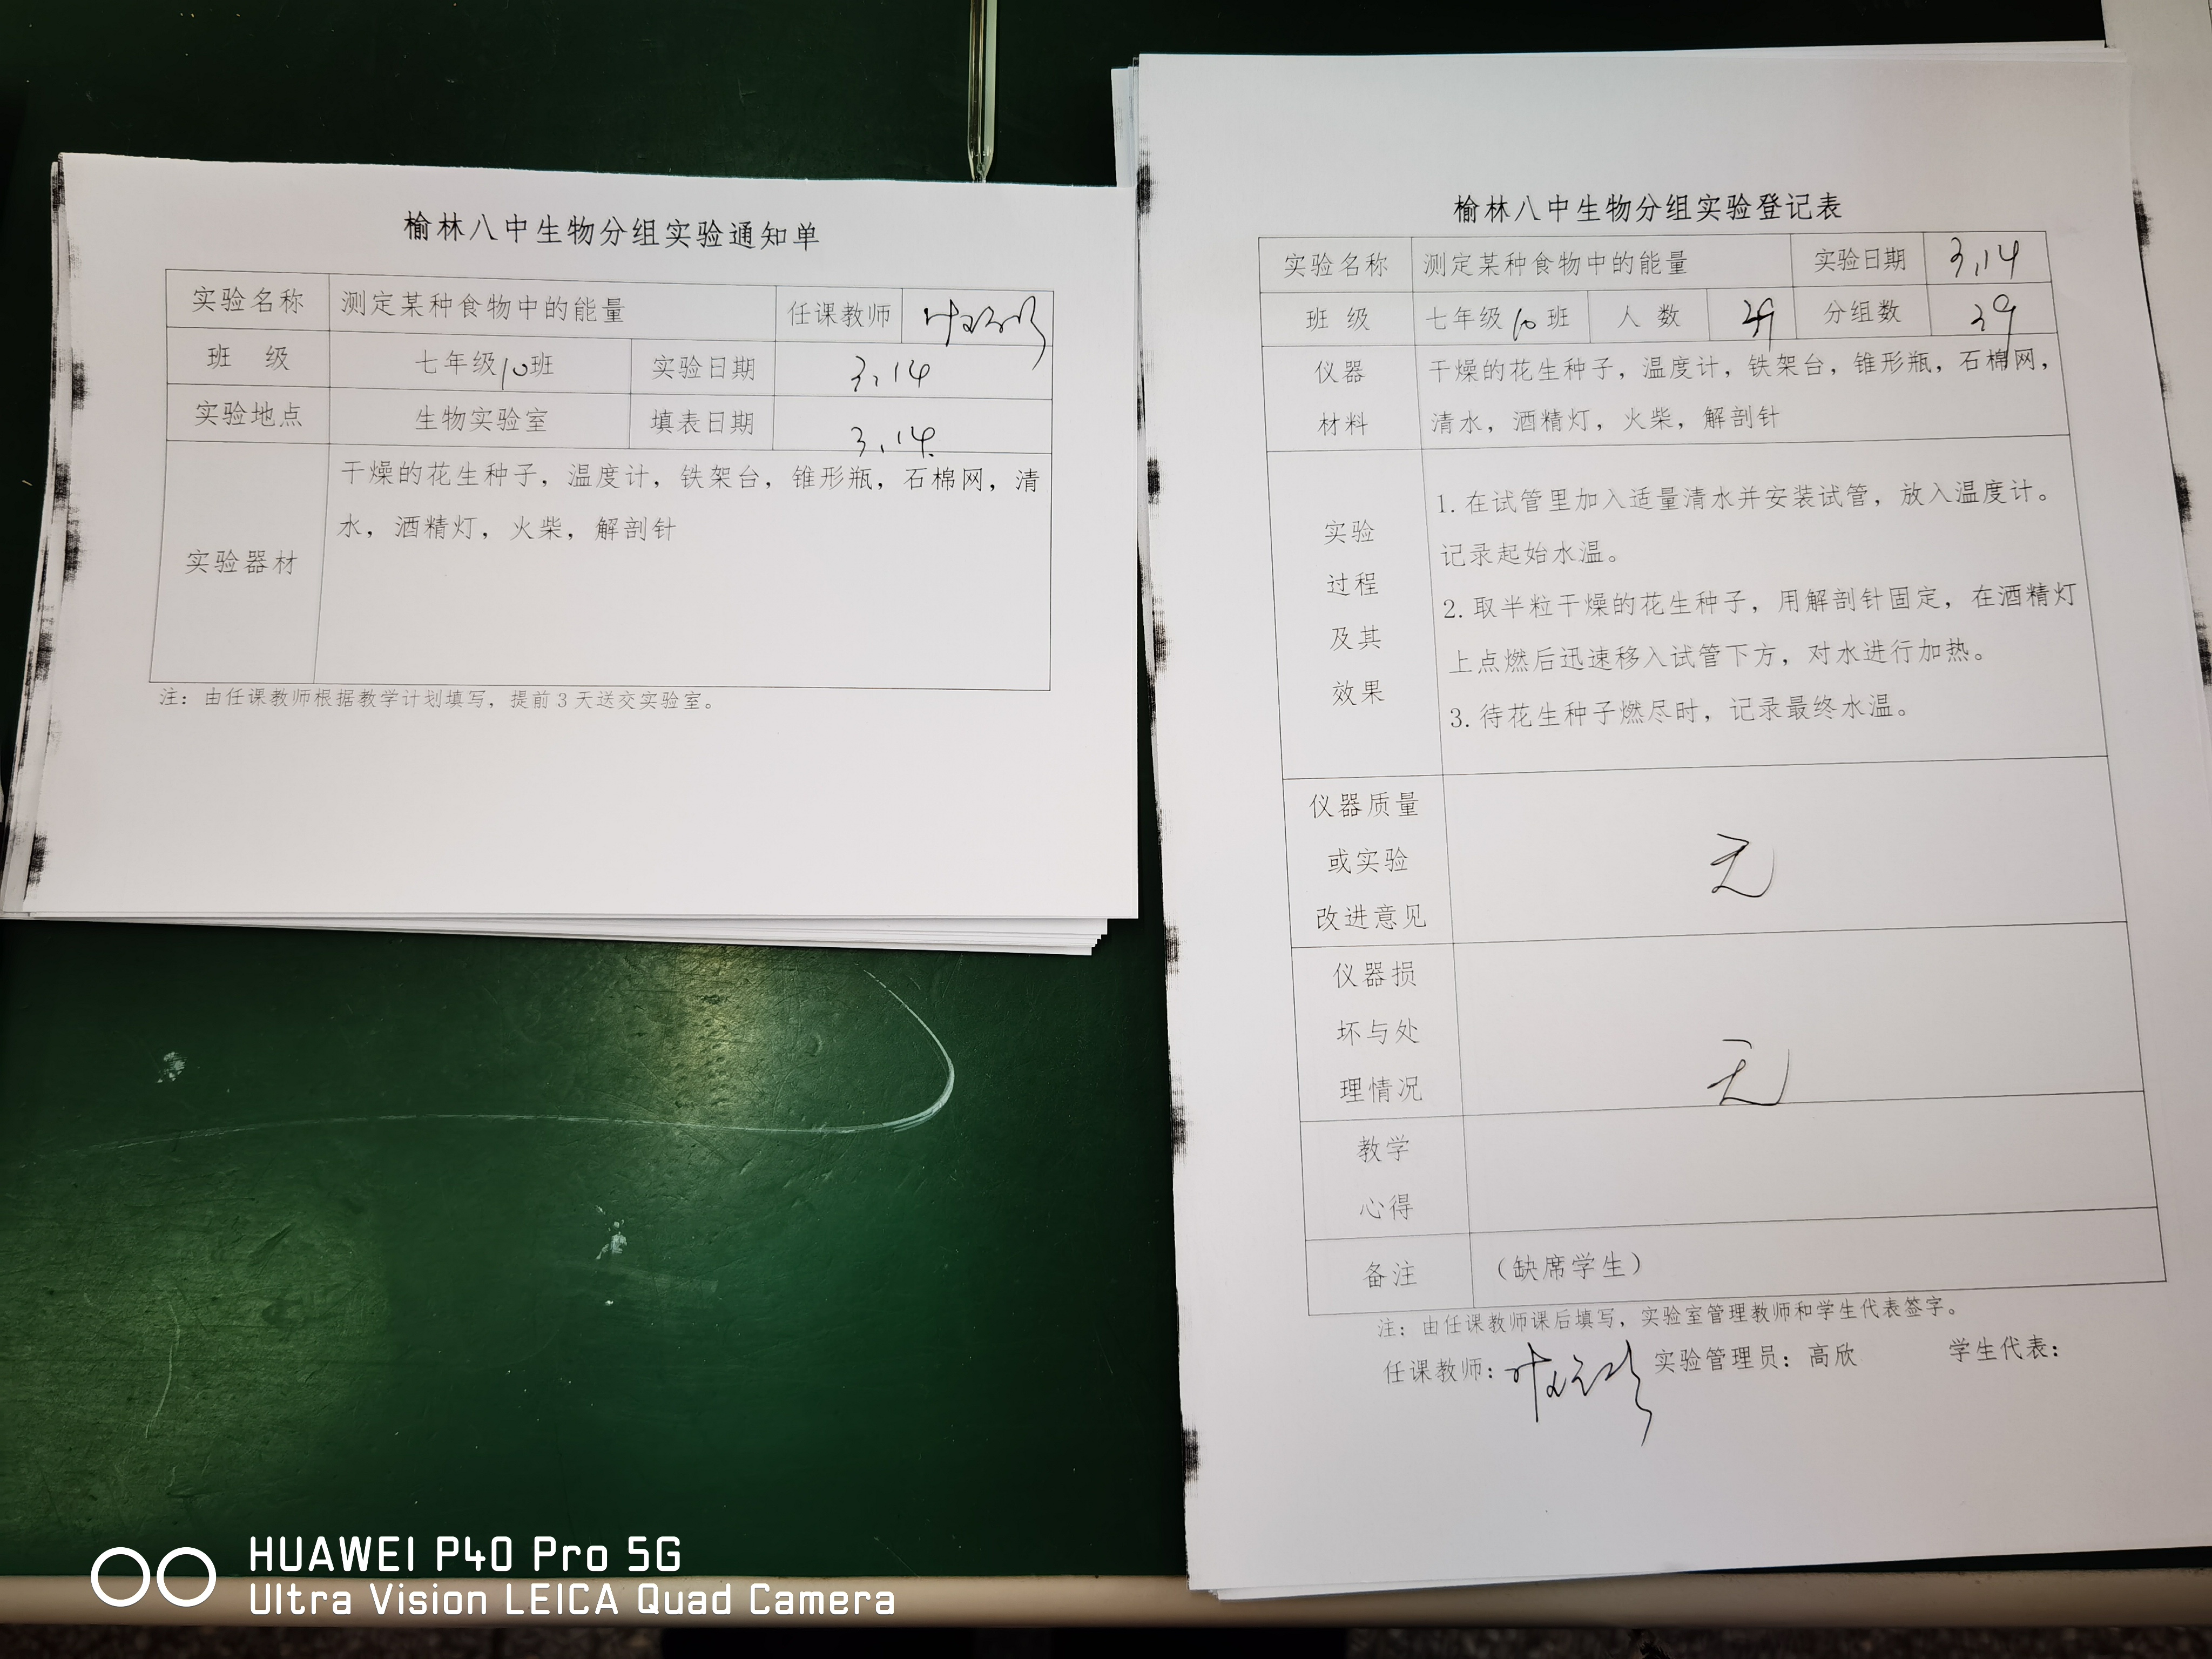 榆林八中生物分组实验通知单
实验名称 测定某种食物中的能量 任课教师
班 级 七年级10班 实验日期 3.14
实验地点 生物实验室 填表日期 3.14.
实验器材
干燥的花生种子，温度计，铁架台，锥形瓶，石棉网，清
水，酒精灯，火柴，解剖针
注：由任课教师根据教学计划填写，提前3天送交实验室。
榆林八中生物分组实验登记表
实验名称 测定某种食物中的能量 实验日期 3.14
班 级 七年级10班 人 数 分组数 29
仪器
材料
干燥的花生种子，温度计，铁架台，锥形瓶，石棉网，
清水，酒精灯，火柴，解剖针
实验
过程
及其
效果
1.在试管里加入适量清水并安装试管，放入温度计。
记录起始水温。
2.取半粒干燥的花生种子，用解剖针固定，在酒精灯
上点燃后迅速移入试管下方，对水进行加热。
3.待花生种子燃尽时，记录最终水温。
仪器质量
或实验
改进意见
无
仪器损
坏与处
理情况
无
教学
心得
备注 （缺席学生）
注：由任课教师课后填写，实验室管理教师和学生代表签字。
任课教师： 实验管理员：高欣 学生代表：
HUAWEI P40 Pro 5G
Ultra Vision LEICA Quad Camera